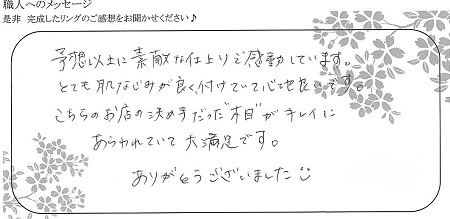 職人へのメッセージ
是非 完成したリングのご感想をお聞かせください♪
予想以上に素敵な仕上りで感動しています。
とても肌なじみが良く付けていて心地良いです。
こちらのお店の決め手だった"木目"がキレイに
あらわれていて大満足です。
ありがとうございました